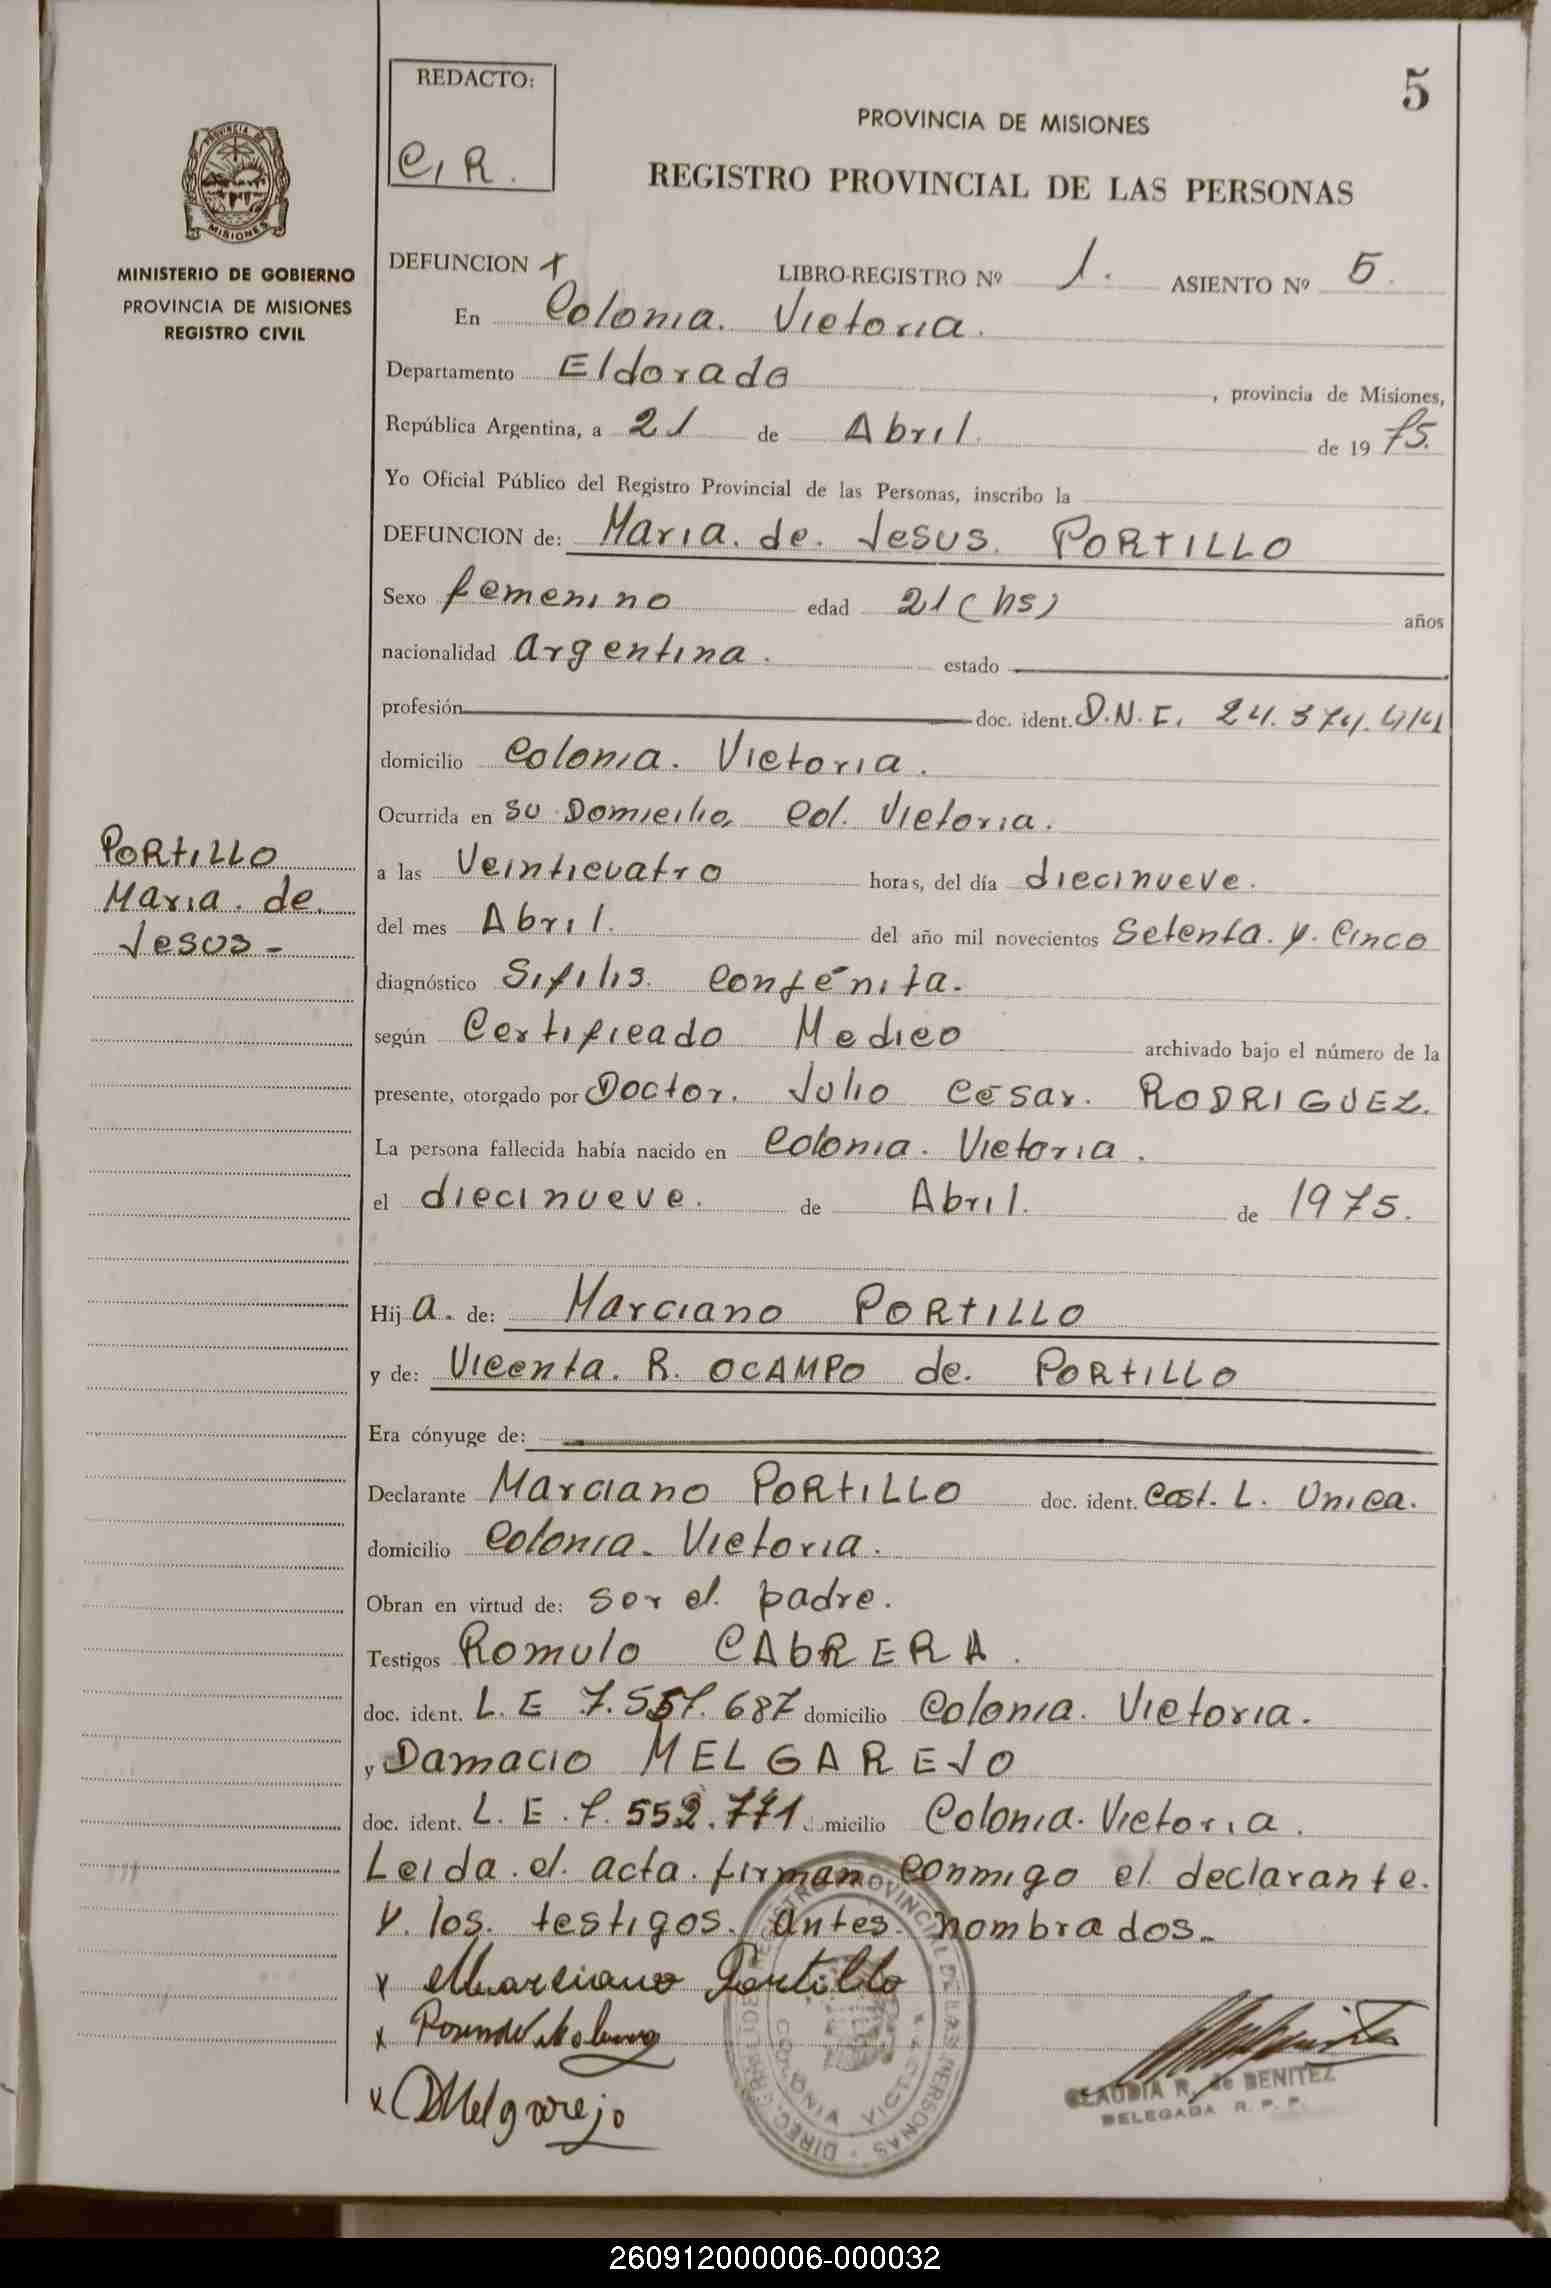 5
REDACTO:
C, R.
PROVINCIA DE MISIONES
REGISTRO PROVINCIAL DE LAS PERSONAS
PROVINCIA DE
MISIONES
MINISTERIO DE GOBIERNO
PROVINCIA DE MISIONES
REGISTRO CIVIL
DEFUNCION + LIBRO-REGISTRO Nº 1. ASIENTO Nº 5.
En Colonia. Victoria.
Departamento Eldorado, provincia de Misiones,
República Argentina, a 21 de Abril. de 1975.
Yo Oficial Público del Registro Provincial de las Personas, inscribo la
DEFUNCION de: Maria. de. Jesus. PORTILLO
Sexo femenino edad 21 (hs) años
nacionalidad argentina. estado
profesión doc. ident. D.N.I. 24.374.414
domicilio Colonia. Victoria.
Ocurrida en su Domicilio, Col. Victoria.
PORTILLO
Maria. de.
Jesus-
a las Veinticuatro horas, del día diecinueve.
del mes Abril. del año mil novecientos Setenta. y. Cinco
diagnóstico Sifilis. Congénita.
según Certificado Medico archivado bajo el número de la
presente, otorgado por Doctor. Julio Cesar. RODRIGUEZ.
La persona fallecida había nacido en Colonia. Victoria.
el diecinueve. de Abril. de 1975.
Hij a. de: Marciano PORTILLO
y de: Vicenta. R. OCAMPO de. PORTILLO
Era cónyuge de:
Declarante Marciano PORTILLO doc. ident. Cost. L. Unica.
domicilio Colonia. Victoria.
Obran en virtud de: ser el. padre.
Testigos Romulo CABRERA.
doc. ident. L. E 7.557.687 domicilio Colonia. Victoria.
y Damacio MELGAREJO
doc. ident. L. E. 7.552.771 domicilio Colonia. Victoria.
Leida. el. acta. firman conmigo el declarante.
y. los. testigos. antes. nombrados.-
x Marciano Portillo
x
x DMelgarejo
DIREC. GRAL. DEL REGISTRO PROVINCIAL DE LAS PERSONAS
COLONIA VICTORIA
CLAUDIA R. de BENITEZ
DELEGADA R. P. P.
260912000006-000032